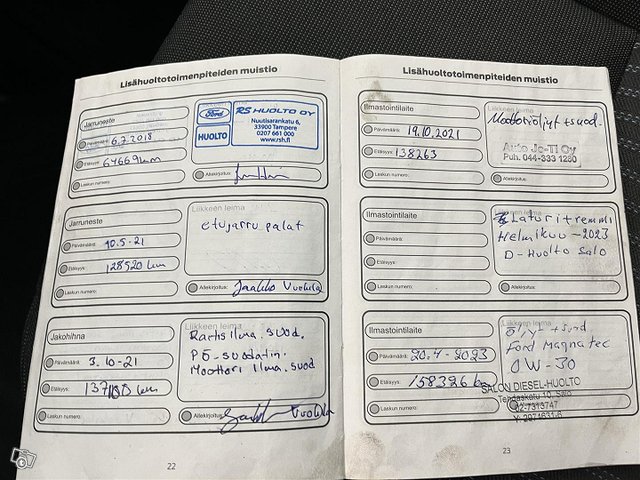 Lisähuoltotoimenpiteiden muistio
Jarruneste
Päivämäärä: 6.7.2018
Etäisyys: 64669 km
Laskun numero:
Ford
HUOLTO
RS HUOLTO OY
Nuutisarankatu 6,
33900 Tampere
0207 661 000
www.rsh.fi
Allekirjoitus:
Jarruneste
Päivämäärä: 10.5-21
Etäisyys: 128520 km
Laskun numero:
Liikkeen leima
etujarru palat
Allekirjoitus: Jaakko Vuokila
Jakohihna
Päivämäärä: 3.10-21
Etäisyys: km
Laskun numero:
Liikkeen leima
Raitis ilma. suod.
PÖ-suodatin.
Moottori ilma. suod
Allekirjoitus: Vuokila
22
Lisähuoltotoimenpiteiden muistio
Ilmastointilaite
Päivämäärä: 19.10.2021
Etäisyys: 138263
Laskun numero:
Liikkeen leima
Moottoriöljyt + suod.
Auto Jo-Ti Oy
Puh. 044-333 1280
Allekirjoitus:
Ilmastointilaite
Päivämäärä:
Etäisyys:
Laskun numero:
Laturi + remmi
Helmikuu - 2023
D-Huolto Salo
Allekirjoitus:
Ilmastointilaite
Päivämäärä: 20.4-2023
Etäisyys: 158326
Laskun numero:
Liikkeen leima
Ford Magnatec
0W-30
SALON DIESEL-HUOLTO
Tehdaskatu 10, Salo
02-7313747
23